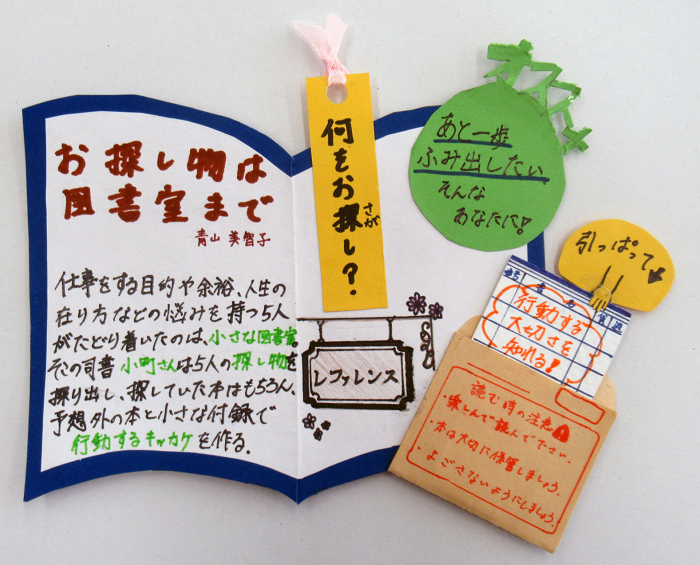 お探し物は
図書室まで
青山 美智子
仕事をする目的や余裕、人生の
在り方などの悩みを持つ5人
がたどり着いたのは、小さな図書室。
そこの司書 小町さんは5人の探し物を
探り出し、探していた本はもちろん、
予想外の本と小さな付録で
行動するキッカケを作る.
何をお探し?
さが
レファレンス
オススメ
あと一歩
ふみ出したい
そんな
あなたに!
引っぱって
行動する
大切さを
知れる!
読む時の注意
・楽しんで読んで下さい.
・本は大切に保管しましょう.
・よごさないようにしましょう.